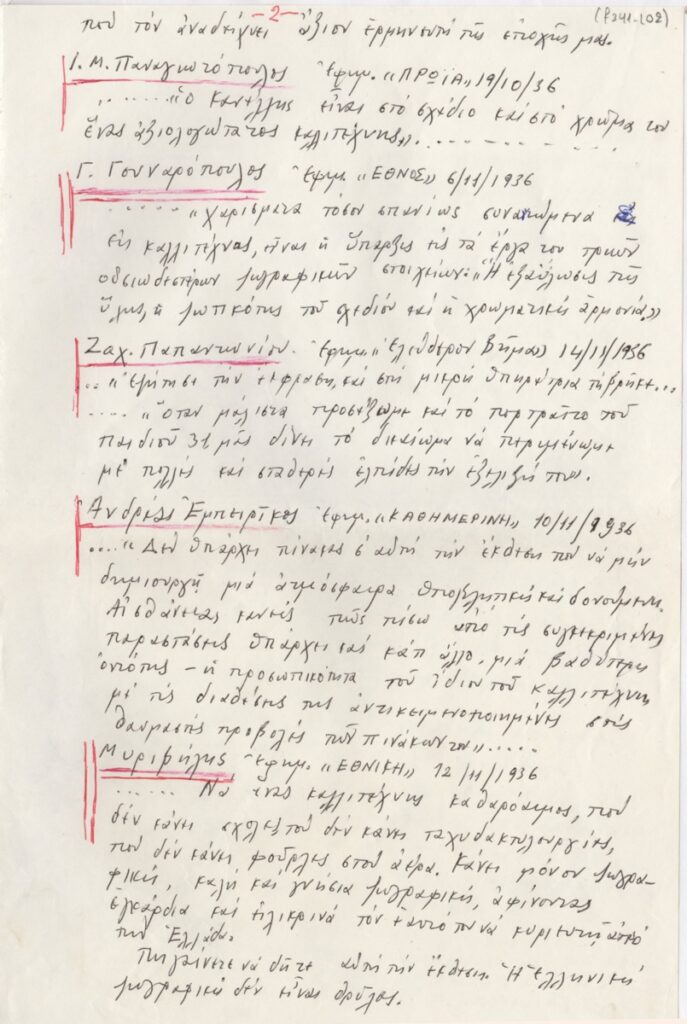 -2-
(f241-02)
που τόν ἀναδείχνει ἄξιον ἑρμηνευτή τῆς ἐποχῆς μας.
Ι. Μ. Παναγιωτόπουλος Ἐφημ. «ΠΡΩΪΑ» 19/10/36
........«Ὁ Κανέλλης εἶναι στό σχέδιο καί στό χρῶμα του
ἕνας ἀξιολογώτατος καλλιτέχνης»..........
Γ. Γουναρόπουλος Ἐφημ. «ΕΘΝΟΣ» 6/11/1936
...... «Χαρίσματα τόσον σπανίως συναντώμενα
εἰς καλλιτέχνας, εἶναι ἡ ὕπαρξις εἰς τά ἔργα του τριῶν
οὐσιωδεστέρων ζωγραφικῶν στοιχείων: «Ἡ ἐξαΰλωσις τῆς
ὕλης, ἡ ζωτικότης τοῦ σχεδίου καί ἡ χρωματική ἁρμονία.»
Ζαχ. Παπαντωνίου. Ἐφημ. «Ἐλεύθερον Βῆμα» 14/11/1936
..«Ἐζήτησε τήν ἔκφραση, καί στή μικρή ὑπηρέτρια τή βρῆκε...
..... «Ὅταν μάλιστα προσέξωμε καί τό πορτραῖτο τοῦ
παιδιοῦ 31 μᾶς δίνει τό δικαίωμα νά περιμένωμε
μέ πολλές καί σταθερές ἐλπίδες τήν ἐξέλιξή του».
Ανδρέας Ἐμπειρῖκος Ἐφημ. «ΚΑΘΗΜΕΡΙΝΗ» 10/11/1936
....«Δέν ὑπάρχει πίνακας σ' αὐτή τήν ἔκθεση που νά μήν
δημιουργῆ μιά ἀτμόσφαιρα ὑποβλητική καί δονούμενη.
Αἰσθάνεται κανείς πῶς πίσω ἀπό τίς συγκεκριμένες
παραστάσεις ὑπάρχει καί κάτι ἄλλο, μιά βαθύτερη
ὀντότης – ἡ προσωπικότητα τοῦ ἴδιου τοῦ καλλιτέχνη
μέ τίς διαθέσεις της ἀντικειμενοποιημένες στίς
θαυμαστές προβολές τῶν πινάκων του».....
Μυριβήλης Ἐφημ. «ΕΘΝΙΚΗ» 12/11/1936
...... Να ἕνας καλλιτέχνης καθαρόαιμος, πού
δέν κάνει σχολές πού δέν κάνει ταχυδακτυλουργίες,
πού δέν κάνει φοῦρλες στόν ἀέρα. Κάνει μόνον ζωγρα-
φική, καλή καί γνήσια ζωγραφική, ἀφίνοντας
ἐγκάρδια καί εἰλικρινά τόν ἑαυτό του νά κυριευτῆ ἀπό
τήν Ἑλλάδα.
Πηγαίνετε νά δῆτε αὐτή τήν ἔκθεση. Ἡ ἑλληνική
ζωγραφική δέν εἶναι θρῦλος.